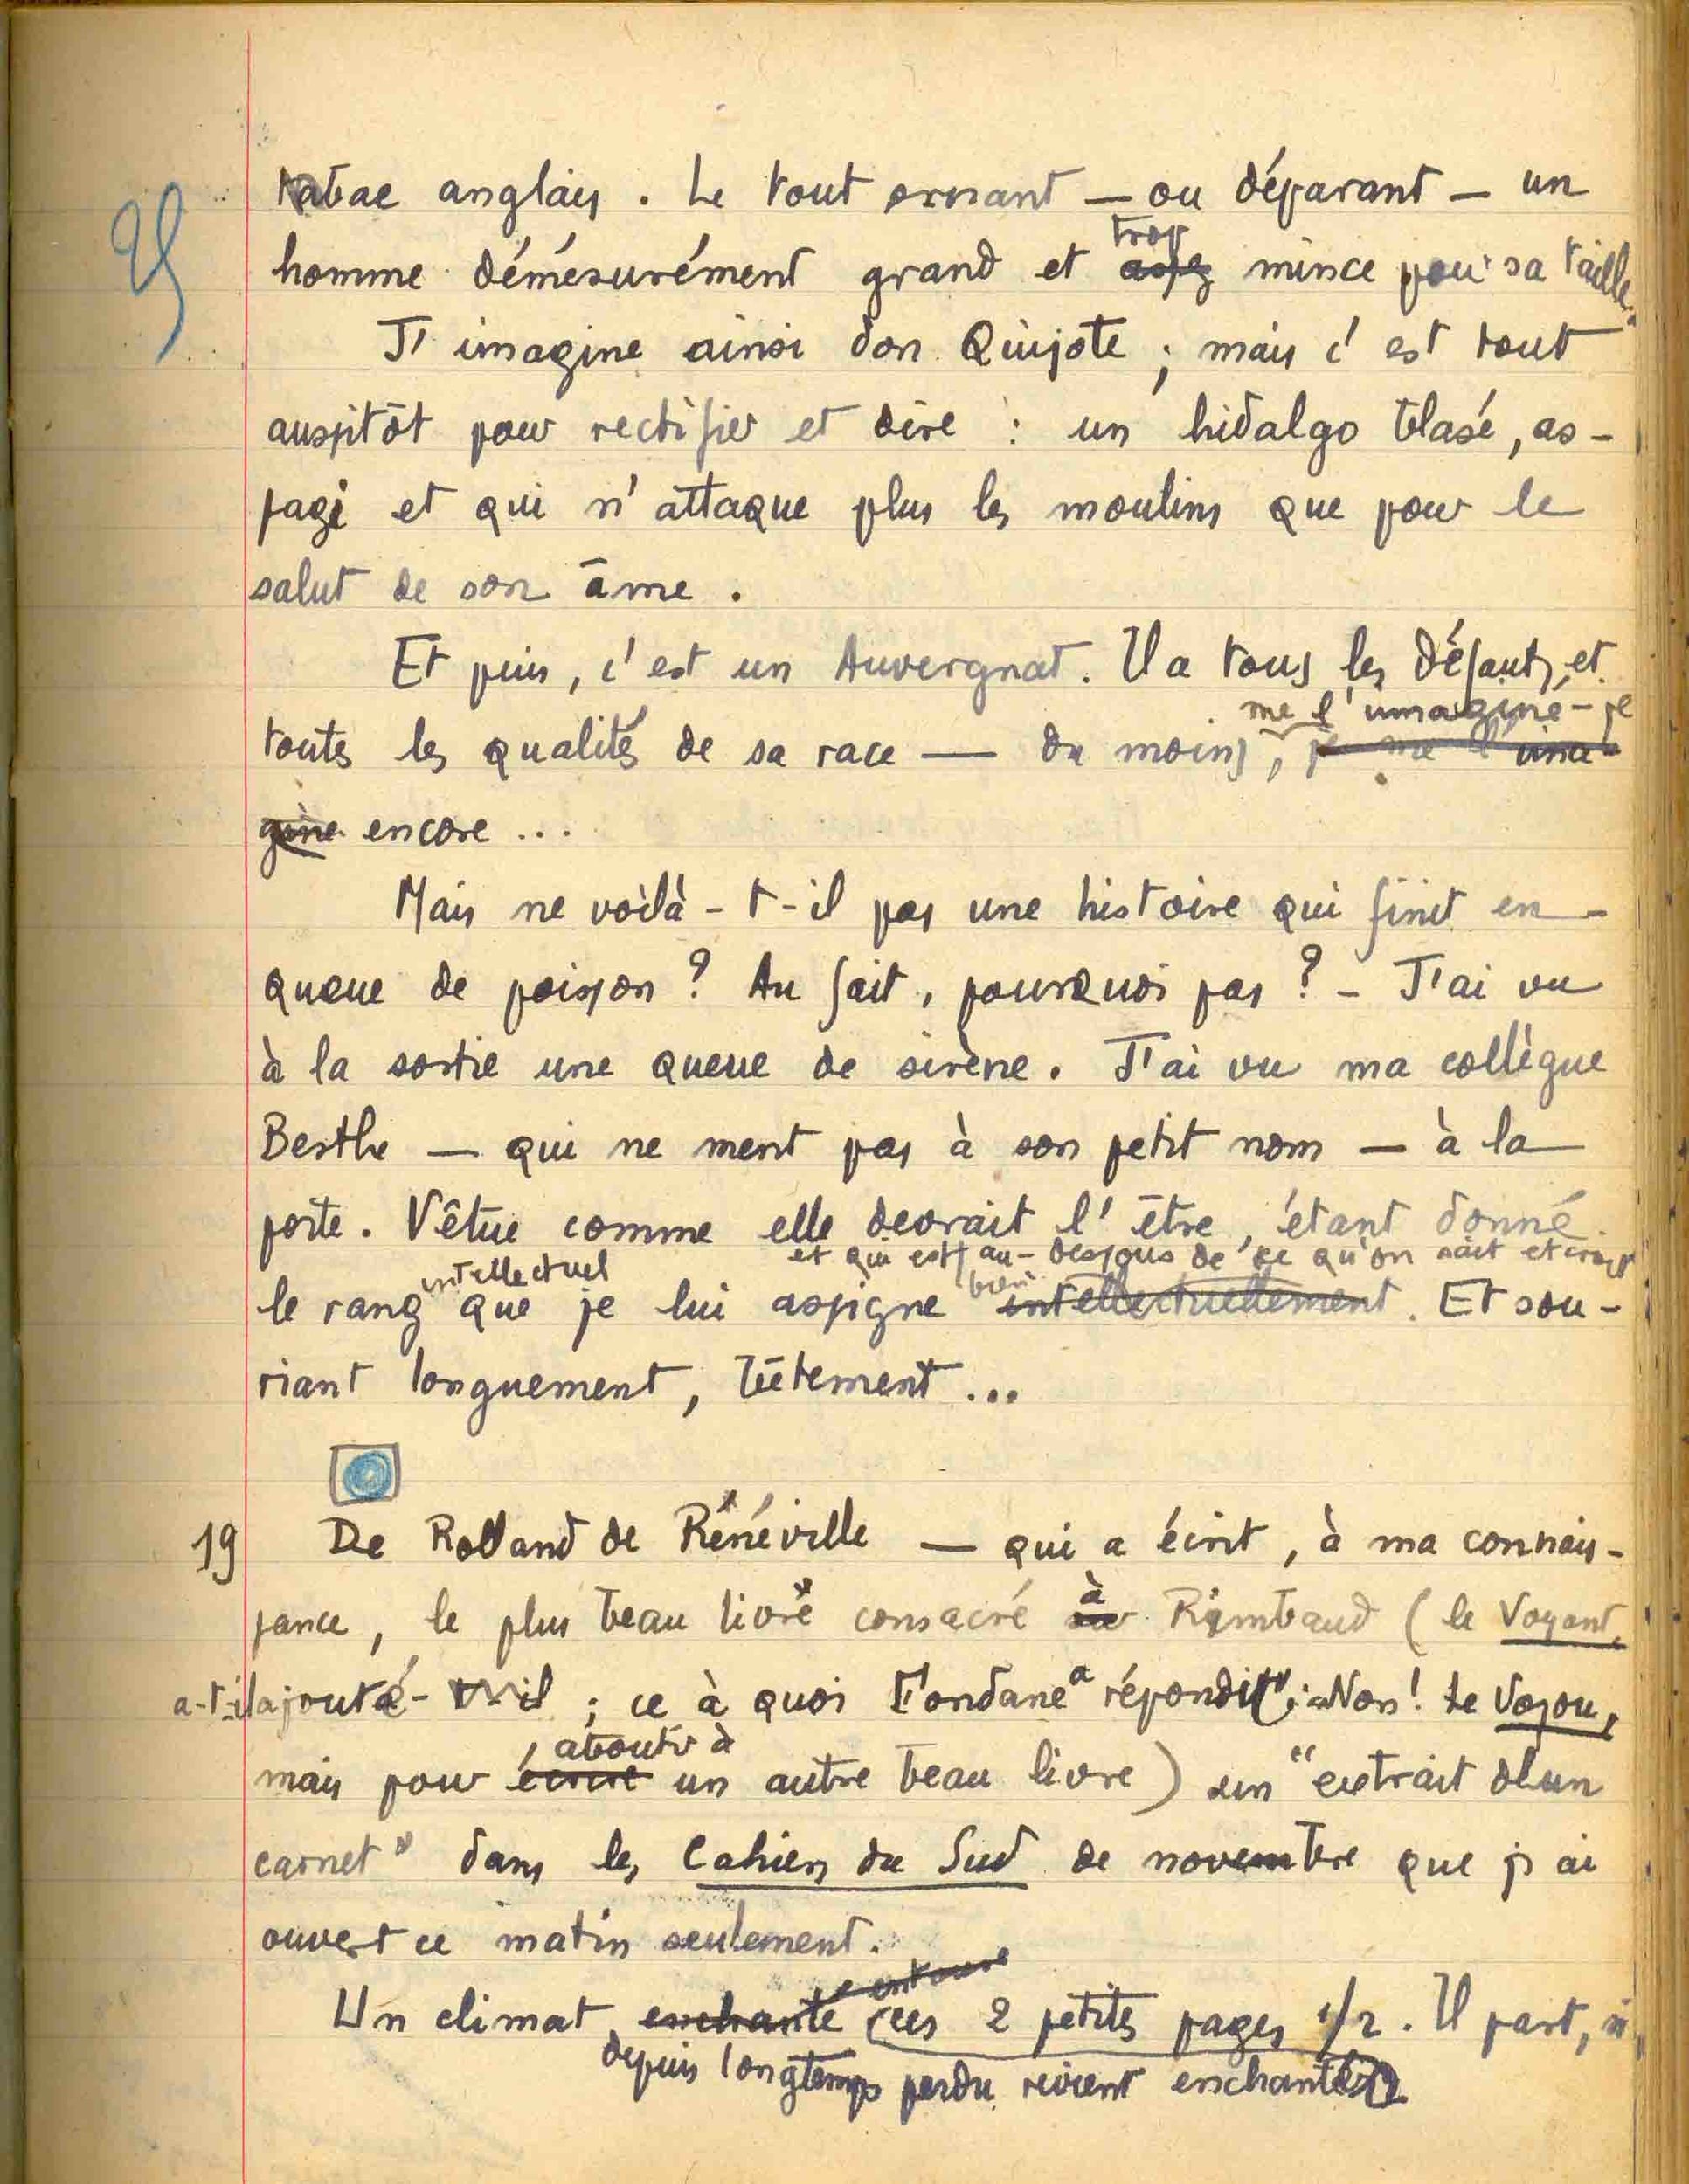 tabac anglais. Le tout ornant — ou déparant — un
trop
homme démésurément grand et assez mince pour sa taille.
J'imagine ainsi don Quijote ; mais c'est tout
aussitôt pour rectifier et dire : un hidalgo blasé, as-
sagi et qui n'attaque plus les moulins que pour le
salut de son âme.
Et puis, c'est un Auvergnat. Il a tous les défauts, et
me l'imaginé-je
toutes les qualités de sa race — du moins, je me l'ima-
gine encore ...
Mais ne voilà-t-il pas une histoire qui finit en-
queue de poisson ? Au fait, pourquoi pas ? - J'ai vu
à la sortie une queue de sirène. J'ai vu ma collègue
Berthe — qui ne ment pas à son petit nom — à la
porte. Vêtue comme elle devrait l'être, étant donné
et qui est au-dessous de ce qu'on sait et croit
intellectuel bien
le rang que je lui assigne intellectuellement. Et sou-
riant longuement, bêtement ...
19 De Rolland de Rénéville — qui a écrit, à ma connais-
à
sance, le plus beau livre consacré sur Rimbaud (le Voyant,
a-t-il ajouté-t-il ; ce à quoi Fondane a répondit : «Non! le Voyou,
aboutir à
mais pour écrire un autre beau livre) un "extrait d'un
carnet" dans les Cahiers du Sud de novembre que j'ai
ouvert ce matin seulement.
entoure
Un climat enchanté ces 2 petites pages 1/2. Il part, à
depuis longtemps perdu revient enchanter